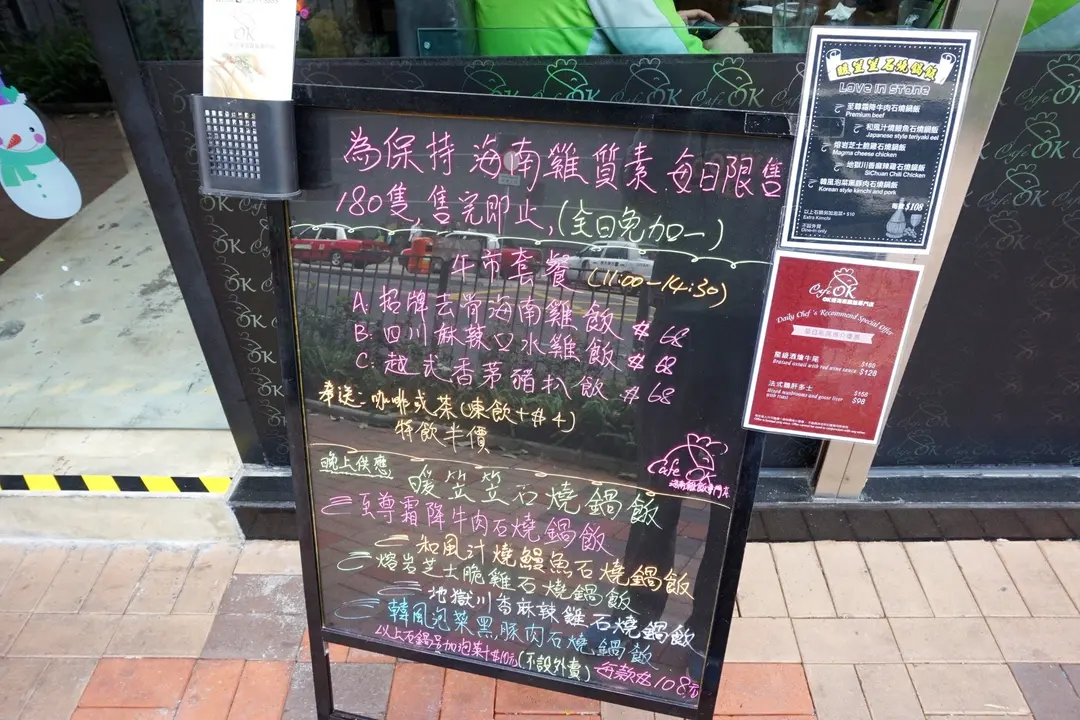 為保持海南雞質素.每日限售
180隻,售完即止,(全日免加一)
午市套餐 (11:00-14:30)
A. 招牌去骨海南雞飯 $68
B. 四川麻辣口水雞飯 $68
C. 越式香茅豬扒飯 $68
奉送:咖啡或茶(凍飲+$4)
特飲半價
Cafe OK
海南雞飯專門店
晚上供應
暖笠笠石燒鍋飯
至尊霜降牛肉石燒鍋飯
和風汁燒鰻魚石燒鍋飯
熔岩芝士脆雞石燒鍋飯
地獄川香麻辣雞石燒鍋飯
韓風泡菜黑豚肉石燒鍋飯
以上石鍋另加泡菜+$10元(不設外賣) 每款$108元
暖笠笠石燒鍋飯
Love in Stone
至尊霜降牛肉石燒鍋飯
Premium beef
和風汁燒鰻魚石燒鍋飯
Japanese style teriyaki eel
熔岩芝士脆雞石燒鍋飯
Magma cheese chicken
地獄川香麻辣雞石燒鍋飯
SiChuan Chili Chicken
韓風泡菜黑豚肉石燒鍋飯
Korean style kimchi and pork
每款 $108
Extra Kimchi
不設外賣
Dine-in only
Cafe OK
Daily Chef's Recommend Special Offer
星級酒燴牛尾 $180
Braised oxtail with red wine sauce $128
法式鵝肝多士 $168
$98
Cafe OK
OK